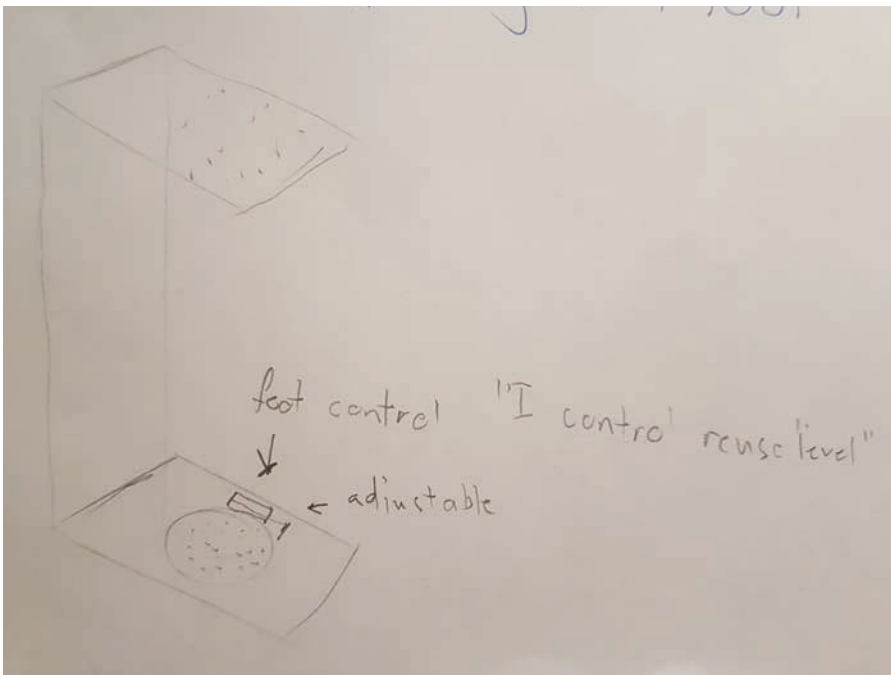 foot control "I control reuse "level"
← adjustable